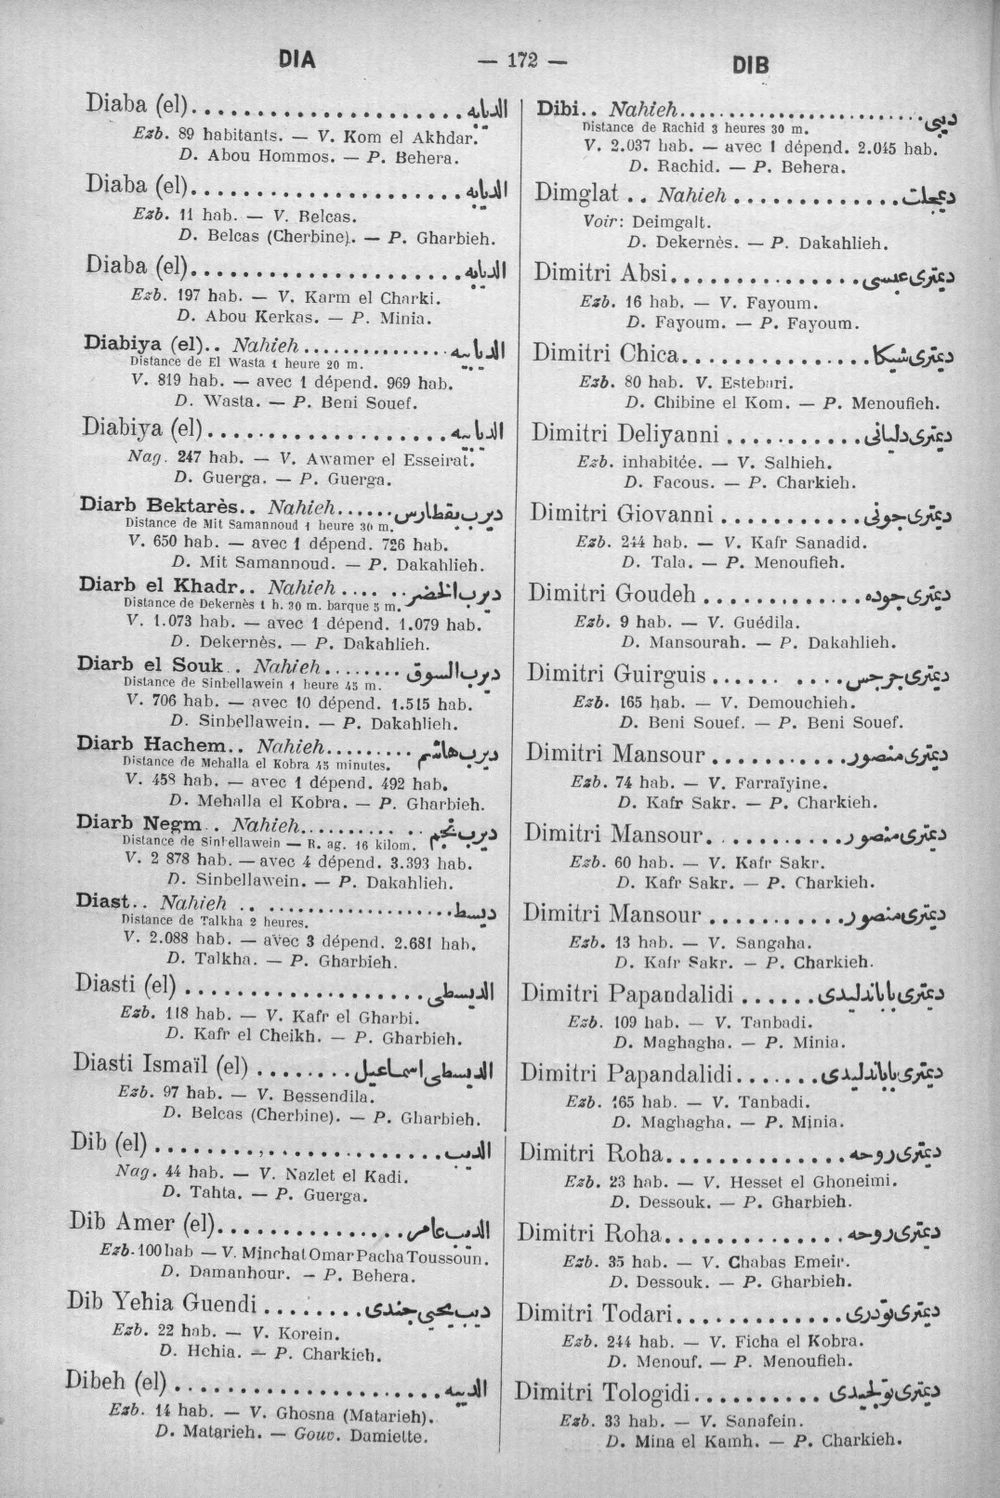 DIA
— 172 —
DIB
Diaba (el)..................... الدبابه
Ezb. 89 habitants. — V. Kom el Akhdar.
D. Abou Hommos. — P. Behera.
Diaba (el)..................... الديابه
Ezb. 11 hab. — V. Belcas.
D. Belcas (Cherbine). — P. Gharbieh.
Diaba (el)..................... الديابه
Ezb. 197 hab. — V. Karm el Charki.
D. Abou Kerkas. — P. Minia.
Diabiya (el).. Nahieh............... الديابيه
Distance de El Wasta 1 heure 20 m.
V. 819 hab. — avec 1 dépend. 969 hab.
D. Wasta. — P. Beni Souef.
Diabiya (el)................... الديابيه
Nag. 247 hab. — V. Awamer el Esseirat.
D. Guerga. — P. Guerga.
Diarb Bektarès.. Nahieh...... ديرب بقطارس
Distance de Mit Samannoud 1 heure 30 m.
V. 650 hab. — avec 1 dépend. 726 hab.
D. Mit Samannoud. — P. Dakahlieh.
Diarb el Khadr.. Nahieh.... .. ديرب الخضر
Distance de Dekernès 1 h. 30 m. barque 5 m.
V. 1.073 hab. — avec 1 dépend. 1.079 hab.
D. Dekernès. — P. Dakahlieh.
Diarb el Souk.. Nahieh........ ديرب السوق
Distance de Sinbellawein 1 heure 45 m.
V. 706 hab. — avec 10 dépend. 1.515 hab.
D. Sinbellawein. — P. Dakahlieh.
Diarb Hachem.. Nahieh......... ديرب هاشم
Distance de Mehalla el Kobra 45 minutes.
V. 458 hab. — avec 1 dépend. 492 hab.
D. Mehalla el Kobra. — P. Gharbieh.
Diarb Negm.. Nahieh.......... .. ديرب نجم
Distance de Sinbellawein — R. ag. 16 kilom.
V. 2 878 hab. — avec 4 dépend. 3.393 hab.
D. Sinbellawein. — P. Dakahlieh.
Diast.. Nahieh .. .................. ديسط
Distance de Talkha 2 heures.
V. 2.088 hab. — avec 3 dépend. 2.681 hab.
D. Talkha. — P. Gharbieh.
Diasti (el) .................. الديسطى
Ezb. 118 hab. — V. Kafr el Gharbi.
D. Kafr el Cheikh. — P. Gharbieh.
Diasti Ismaïl (el) ........ الديسطى اسماعيل
Ezb. 97 hab. — V. Bessendila.
D. Belcas (Cherbine). — P. Gharbieh.
Dib (el) ...................... الديب
Nag. 44 hab. — V. Nazlet el Kadi.
D. Tahta. — P. Guerga.
Dib Amer (el)............... الديب عامر
Ezb. 100 hab — V. Minchat Omar Pacha Toussoun.
D. Damanhour. — P. Behera.
Dib Yehia Guendi ........ ديب يحيى جندى
Ezb. 22 hab. — V. Korein.
D. Hehia. — P. Charkieh.
Dibeh (el) ..................... الديبه
Ezb. 14 hab. — V. Ghosna (Matarieh).
D. Matarieh. — Gouv. Damiette.
Dibi.. Nahieh....................... ديبى
Distance de Rachid 3 heures 30 m.
V. 2.037 hab. — avec 1 dépend. 2.045 hab.
D. Rachid. — P. Behera.
Dimglat .. Nahieh ............. دمجلت
Voir: Deimgalt.
D. Dekernès. — P. Dakahlieh.
Dimitri Absi............... ديمترى عبسى
Ezb. 16 hab. — V. Fayoum.
D. Fayoum. — P. Fayoum.
Dimitri Chica............... ديمترى شيكا
Ezb. 80 hab. V. Estebari.
D. Chibine el Kom. — P. Menoufieh.
Dimitri Deliyanni ........... ديمترى دليانى
Ezb. inhabitée. — V. Salhieh.
D. Facous. — P. Charkieh.
Dimitri Giovanni ........... ديمترى جونى
Ezb. 244 hab. — V. Kafr Sanadid.
D. Tala. — P. Menoufieh.
Dimitri Goudeh ............ ديمترى جوده
Ezb. 9 hab. — V. Guédila.
D. Mansourah. — P. Dakahlieh.
Dimitri Guirguis ...... .... ديمترى جرجس
Ezb. 165 hab. — V. Demouchieh.
D. Beni Souef. — P. Beni Souef.
Dimitri Mansour ........... ديمترى منصور
Ezb. 74 hab. — V. Farraïyine.
D. Kafr Sakr. — P. Charkieh.
Dimitri Mansour........... ديمترى منصور
Ezb. 60 hab. — V. Kafr Sakr.
D. Kafr Sakr. — P. Charkieh.
Dimitri Mansour ........... ديمترى منصور
Ezb. 13 hab. — V. Sangaha.
D. Kafr Sakr. — P. Charkieh.
Dimitri Papandalidi ...... ديمترى باباندليدى
Ezb. 109 hab. — V. Tanbadi.
D. Maghagha. — P. Minia.
Dimitri Papandalidi....... ديمترى باباندليدى
Ezb. 165 hab. — V. Tanbadi.
D. Maghagha. — P. Minia.
Dimitri Roha............... ديمترى روحه
Ezb. 23 hab. — V. Hesset el Ghoneimi.
D. Dessouk. — P. Gharbieh.
Dimitri Roha............... ديمترى روحه
Ezb. 35 hab. — V. Chabas Emeir.
D. Dessouk. — P. Gharbieh.
Dimitri Todari............. ديمترى تودرى
Ezb. 244 hab. — V. Ficha el Kobra.
D. Menouf. — P. Menoufieh.
Dimitri Tologidi.......... ديمترى تولجيدى
Ezb. 33 hab. — V. Sanafein.
D. Mina el Kamh. — P. Charkieh.